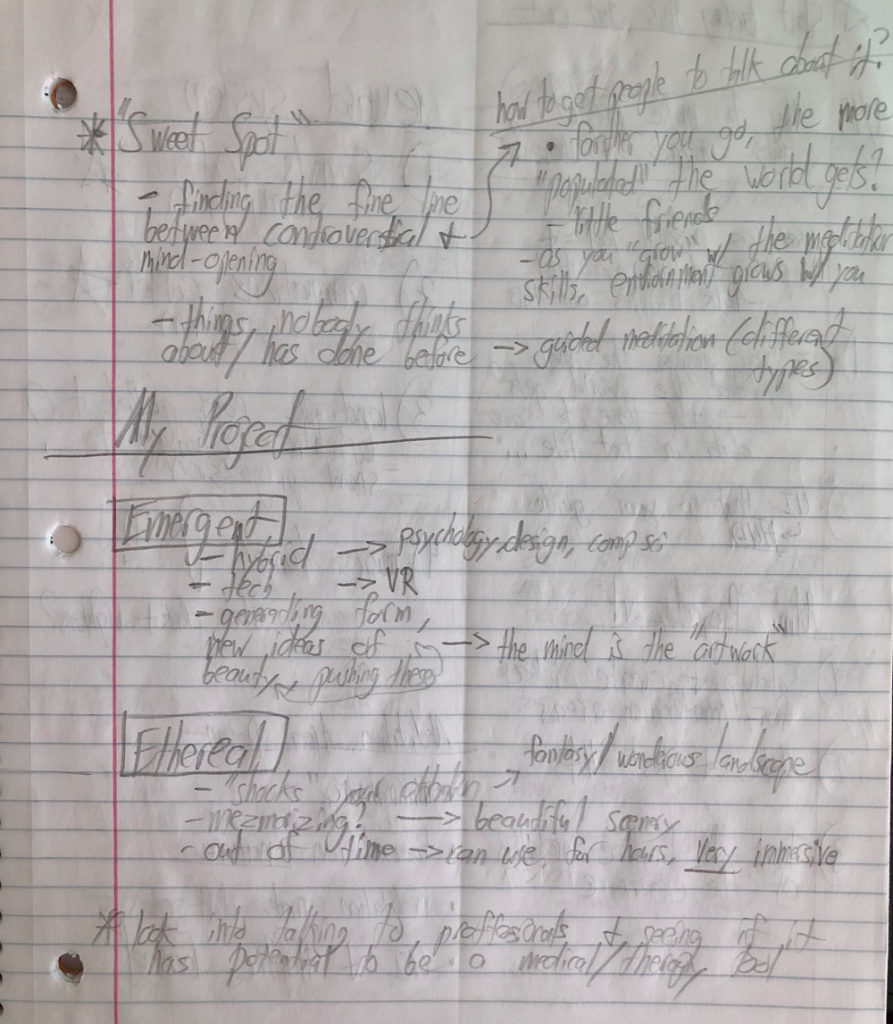 * "Sweet Spot"
- finding the fine line
between controversial +
mind-opening
- things nobody thinks
about/has done before → guided meditation (different
types)
how to get people to talk about it?
• farther you go, the more
"populated" the world gets?
- little friends
- as you "grow" w/ the meditation
skills, environment grows w/ you
My Project
Emergent
- hybrid → psychology, design, comp sci
- tech → VR
- generating form,
new ideas of → the mind is the "artwork"
beauty, pushing these
Ethereal
fantasy/wondrous landscape
- "shocks" your attent'n →
- mezmorizing? → beautiful scenery
- out of time → can use for hours, very immersive
* look into talking to proffesionals + seeing if it
has potential to be a medical/therapy tool